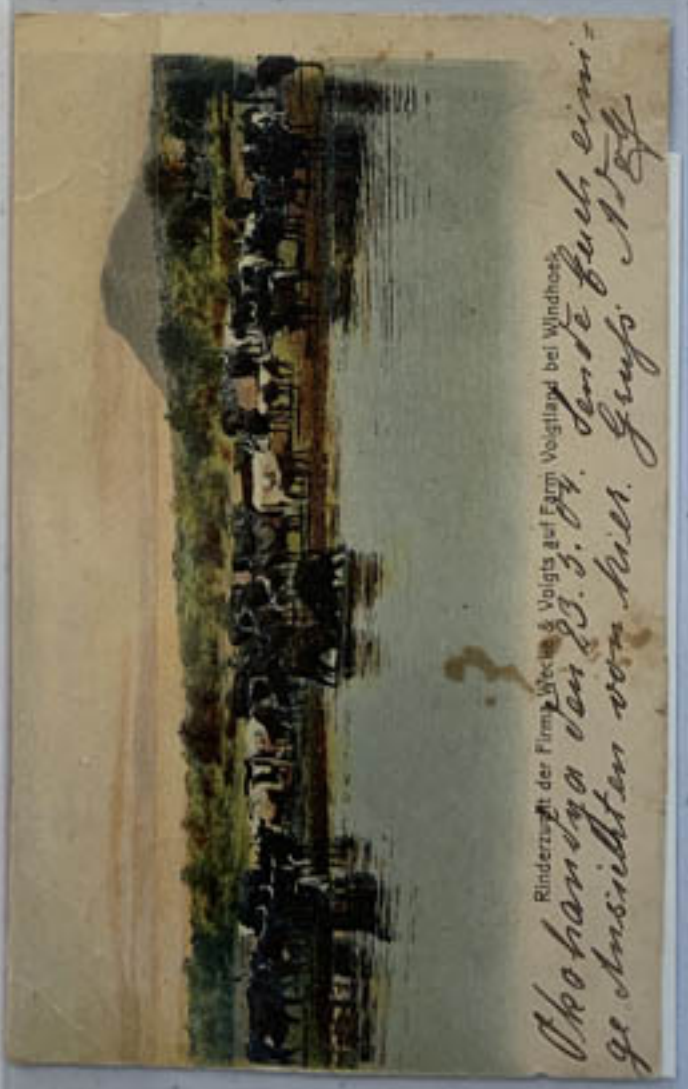 Rinderzucht der Firma Wecke & Voigts auf Farm Voigtland bei Windhoek.
Okohandya den 23. 3. Sende Euch eini=
ge Ansichten von hier. Gruß